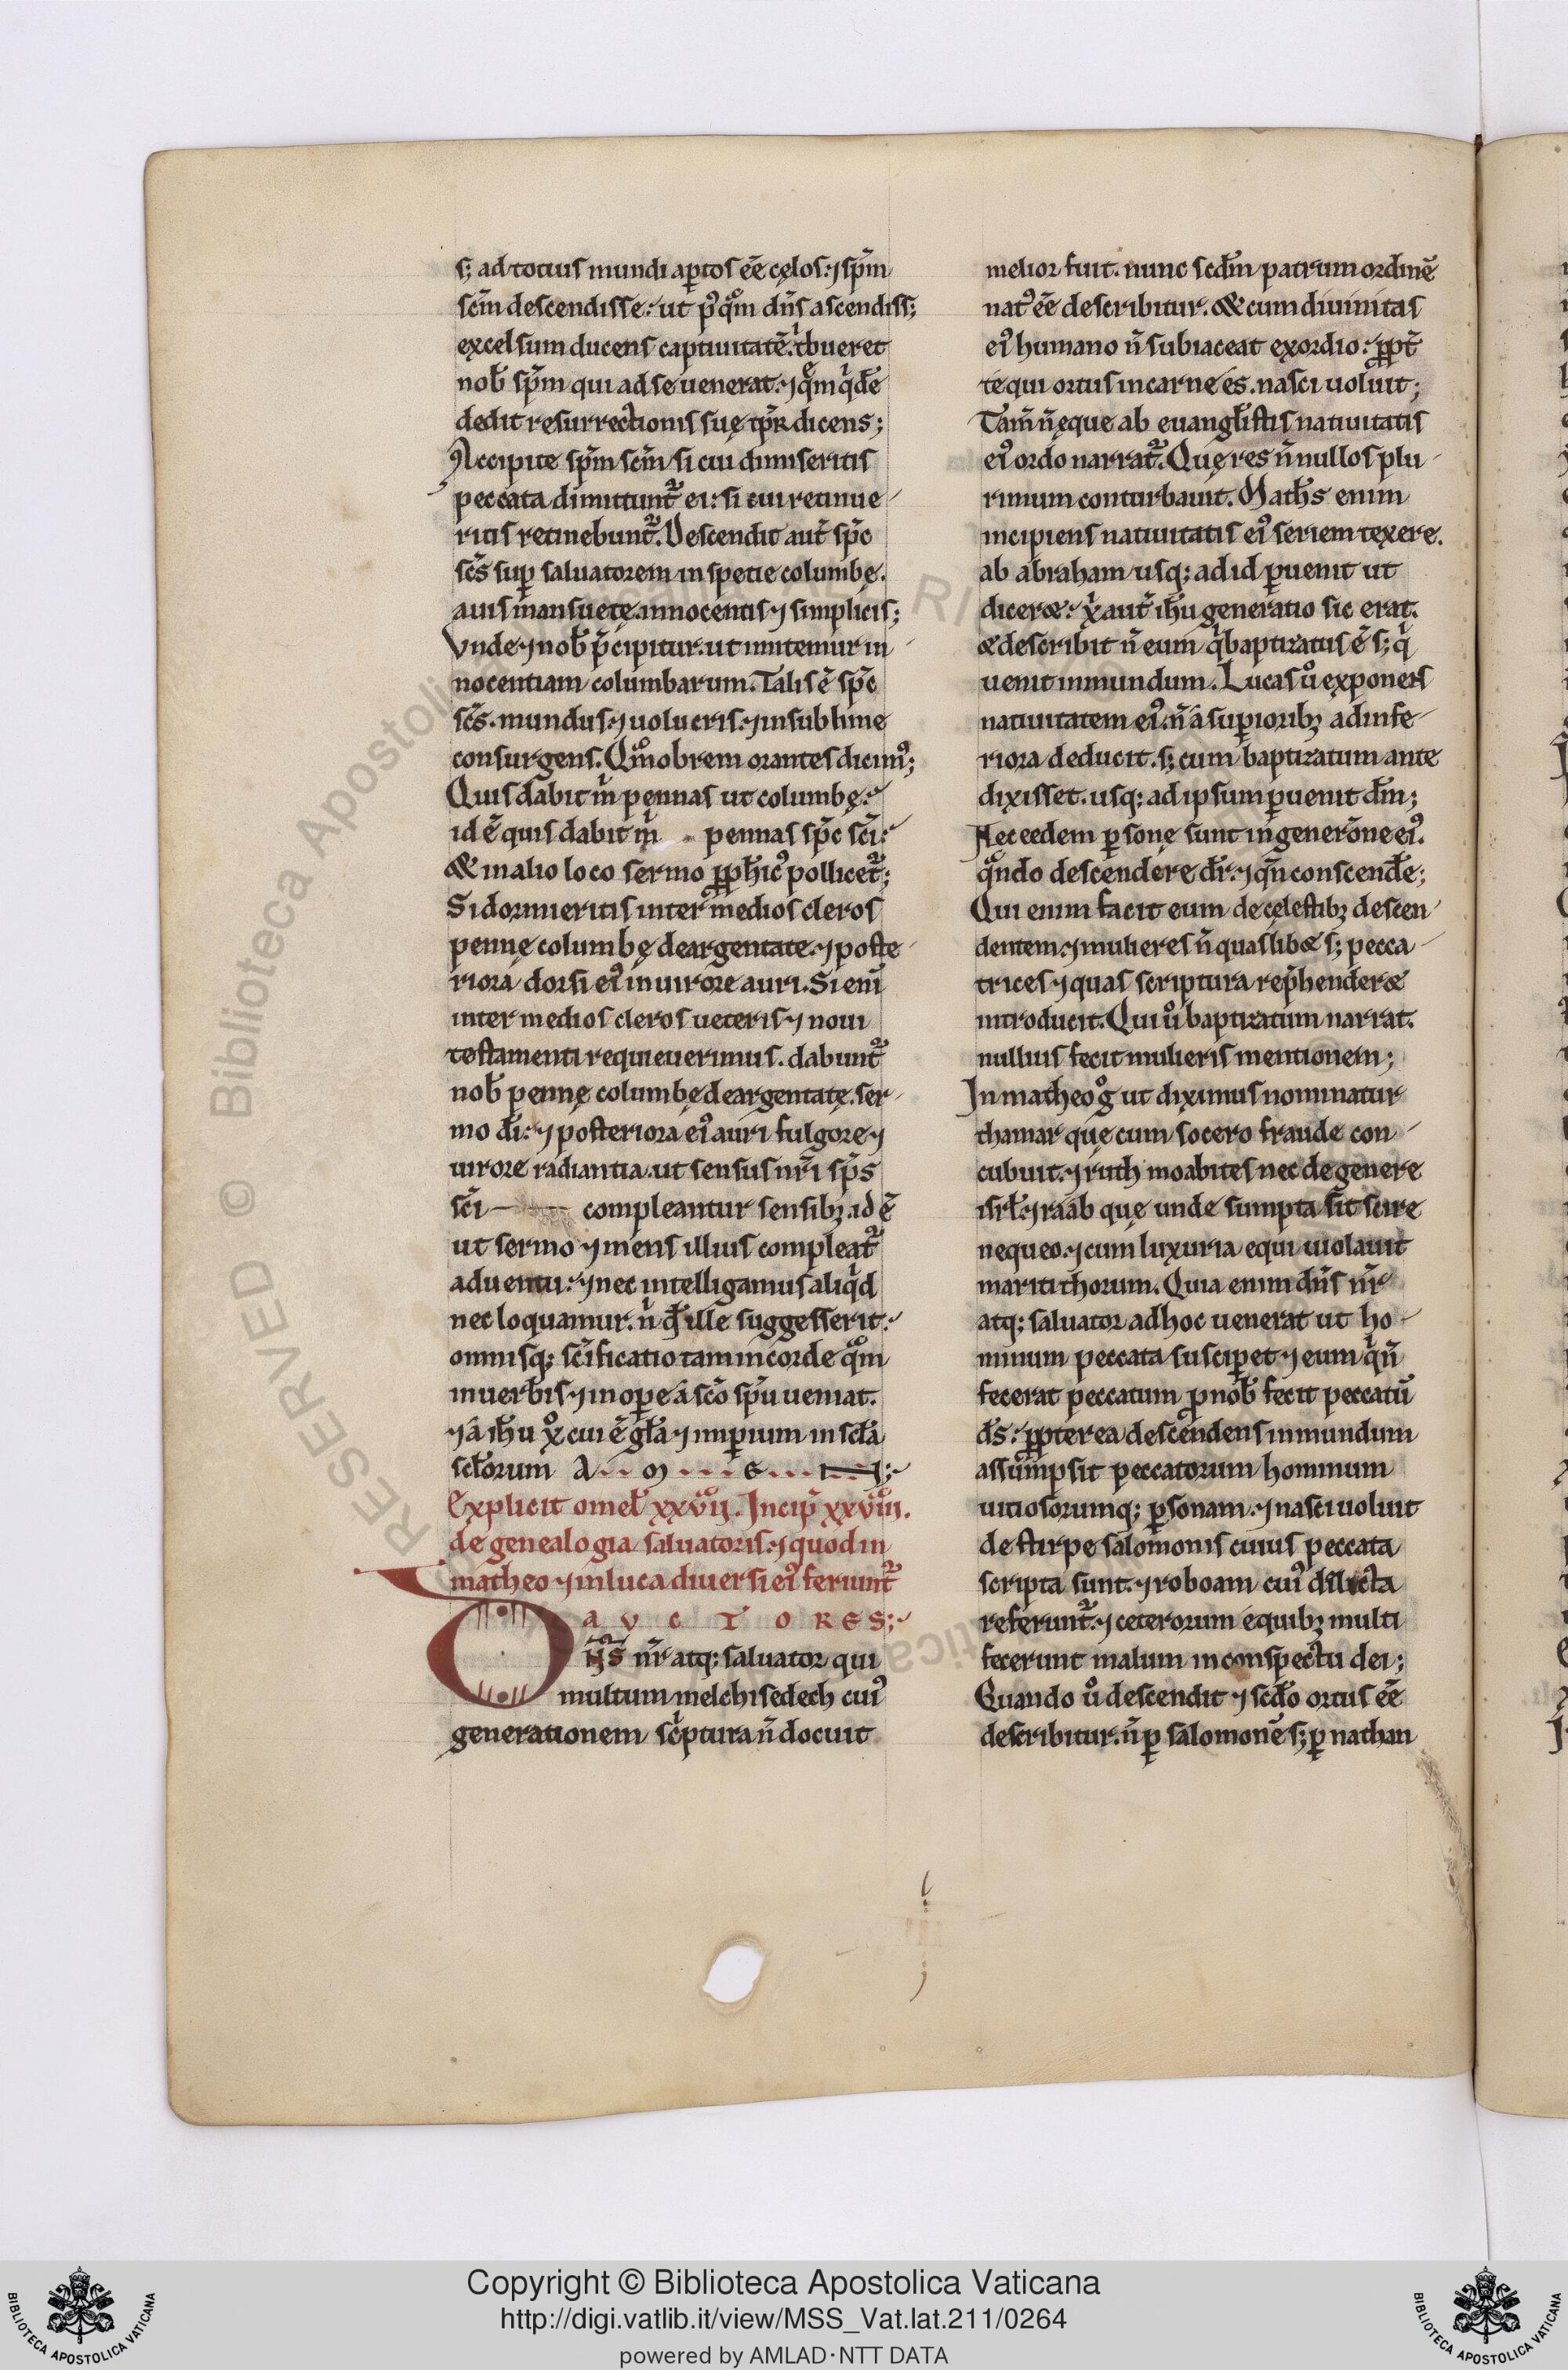 s; ad totius mundi aptos eē cęlos. ⁊ spm̄
scm̄ descendisse. ut pꝰqͦm dn̄s ascendiss;
excelsum ducens captiuitatē. tͥbueret
nob̄ spm̄ qui ad se uenerat. ⁊ qͦm qͥdē
dedit resurrectionis suę tp̄r dicens;
Accipite spm̄ scm̄ si cui dimiseritis
peccata dimittunt᷑ ei: si cui retinue
ritis retinebunt᷑. Descendit aut̄ spc̄
scs̄ suꝑ saluatorem in specie columbę.
auis mansuetę. innocentis ⁊ simplicis;
Vnde ⁊ nob̄ p̄cipitur. ut imitemur in
nocentiam columbarum. Talis ē spc̄
scs̄. mundus ⁊ uolucris. ⁊ in sublime
consurgens. Qͣmobrem orantes dicimꝰ;
Quis dabit mͥ pennas ut columbę.
id ē quis dabit mͥ pennas spc̄ sci̅.
& in alio loco sermo ꝓph̄icꝰ pollicet᷑;
Si dormieritis inter medios cleros
pennę columbę deargentate. ⁊ poste
riora dorsi eiꝰ in uirore auri. Si eni̅
inter medios cleros ueteris ⁊ noui
testamenti requieuerimus. dabunt᷑
nob̄ pennę columbę deargentatę. ser
mo di̅. ⁊ posteriora eiꝰ auri fulgore ⁊
uirore radiantia. ut sensus nr̄i sps̄
sci̅ compleantur sensibꝫ. id ē
ut sermo ⁊ mens illius compleat᷑
aduentu. ⁊ nec intelligamus aliqͥd
nec loquamur. nͥ qd̄ ille suggesserit.
omnisq; scīficatio tam in corde qͣm
in uerbis ⁊ in opere a sco̅ spu̅ ueniat.
⁊ a ihu̅ xͦ cui ē gl̄a ⁊ imꝑium in scl̄a
scl̄orum A · · m · · · e · · · N;
Explicit omel̄ xxvij. Incip̄ xxviij.
de genealogia saluatoris. ⁊ quod in
matheo ⁊ in luca diuersi eiꝰ feriunt᷑
A V C T O R E S;
Dn̄s nr̄ atq; saluator qui
multum melchisedech cuiꝰ
generationem scͥptura n̄ docuit
melior fuit. nunc scdm̄ patrum ordinē
natꝰ eē describitur. & cum diuinitas
eiꝰ humano n̄ subiaceat exordio. ꝓpt̄
te qui ortus in carne es. nasci uoluit;
Tam̄ n̄ ęque ab euangl̄istis natiuitatis
eiꝰ ordo narrat᷑. Quę res n̄nullos plu
rimum conturbauit. Math̄s enim
incipiens natiuitatis eiꝰ seriem texere.
ab abraham usq; ad id ꝑuenit ut
diceret. xͥ aut̄ ih̄u generatio sic erat.
& describit n̄ eum qͥ baptizatus ē s; qͥ
uenit in mundum. Lucas uͦ exponens
natiuitatem eiꝰ. n̄ a suꝑioribꝫ ad infe
riora deducit. s; cum baptizatum ante
dixisset. usq; ad ipsum ꝑuenit dm̄;
Nec eedem ꝑsonę sunt in generōne eiꝰ.
qͣndo descendere dr̄. ⁊ qn̄ conscendē;
Qui enim facit eum de cęlestibꝫ descen
dentem. ⁊ mulieres n̄ quaslibet s; pecca
trices ⁊ quas scriptura rep̄henderet
introducit. Qui uͦ baptizatum narrat.
nullius fecit mulieris mentionem;
In matheo gͦ ut diximus nominatur
thamar quę cum socero fraude con
cubuit. ⁊ ruth moabites nec de genere
isrl̄. ⁊ raab quę unde sumpta sit scire
nequeo. ⁊ cum luxuria equi uiolauit
mariti thorum. Quia enim dn̄s nr̄
atq; saluator ad hoc uenerat ut ho
minum peccata susciꝑet ⁊ eum qͥ n̄
fecerat peccatum ꝓ nob̄ fecit peccatū
ds̄. ꝓpterea descendens in mundum
assumpsit peccatorum hominum
uitiosorumq; ꝑsonam. ⁊ nasci uoluit
de stirpe salomonis cuius peccata
scripta sunt. ⁊ roboam cuiꝰ dilicta
referunt᷑. ⁊ ceterorum e quibꝫ multi
fecerunt malum in conspectu dei;
Quando uͦ descendit ⁊ scd̄o ortus eē
describitur. n̄ ꝑ salomonē s; ꝑ nathan
Copyright © Biblioteca Apostolica Vaticana
http://digi.vatlib.it/view/MSS_Vat.lat.211/0264
powered by AMLAD·NTT DATA